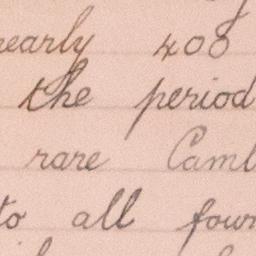 nearly 408
the period
rare Caml
to all four